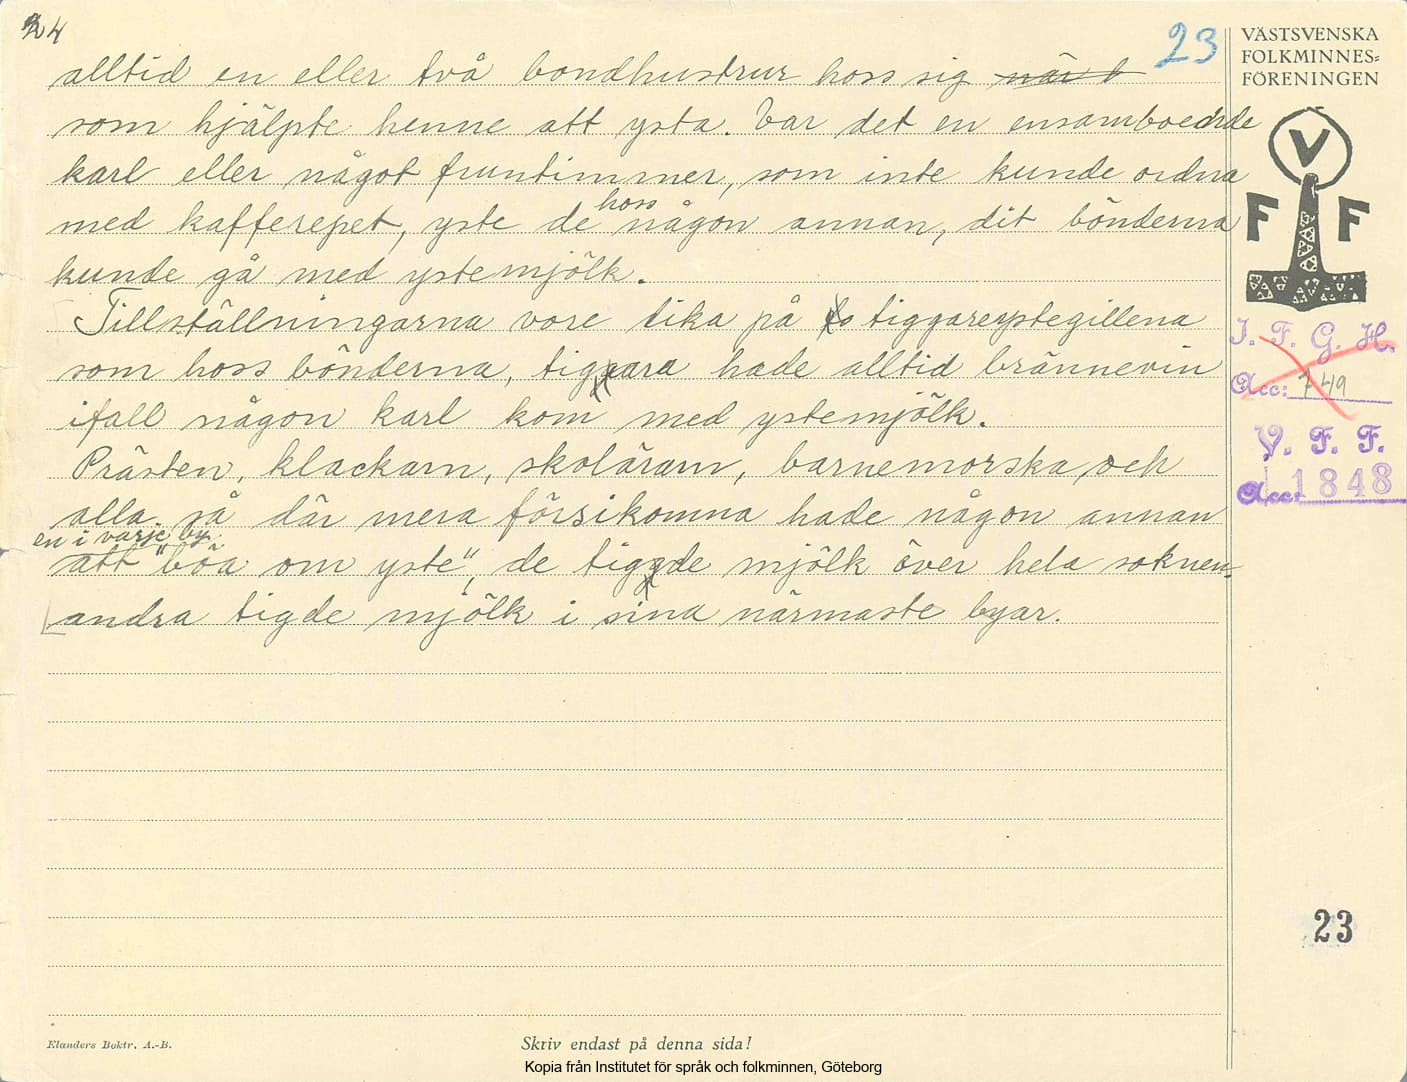 24
23
VÄSTSVENSKA
FOLKMINNES=
FÖRENINGEN
alltid en eller två bondhustrur hoss sig när b
som hjälpte henne att ysta. Var det en ensamboende
karl eller något fruntimmer, som inte kunde ordna
hoss
med kafferepet, yste de någon annan, dit bönderna
kunde gå med ystemjölk.
Tillställningarna vore lika på to tiggareystegillena
som hoss bönderna, tiggara hade alltid brännevin
ifall någon karl kom med ystemjölk.
Prästen, klackarn, skolärarn, barnemorska, och
alla så där mera försikomna hade någon annan
en i varje by
att "böa om yste", de tigde mjölk över hela soknen.
andra tigde mjölk i sina närmaste byar.
V
F F
I. F. G. H.
Acc: 749
V. F. F.
Acc. 1848
23
Elanders Boktr. A.-B.
Skriv endast på denna sida!
Kopia från Institutet för språk och folkminnen, Göteborg